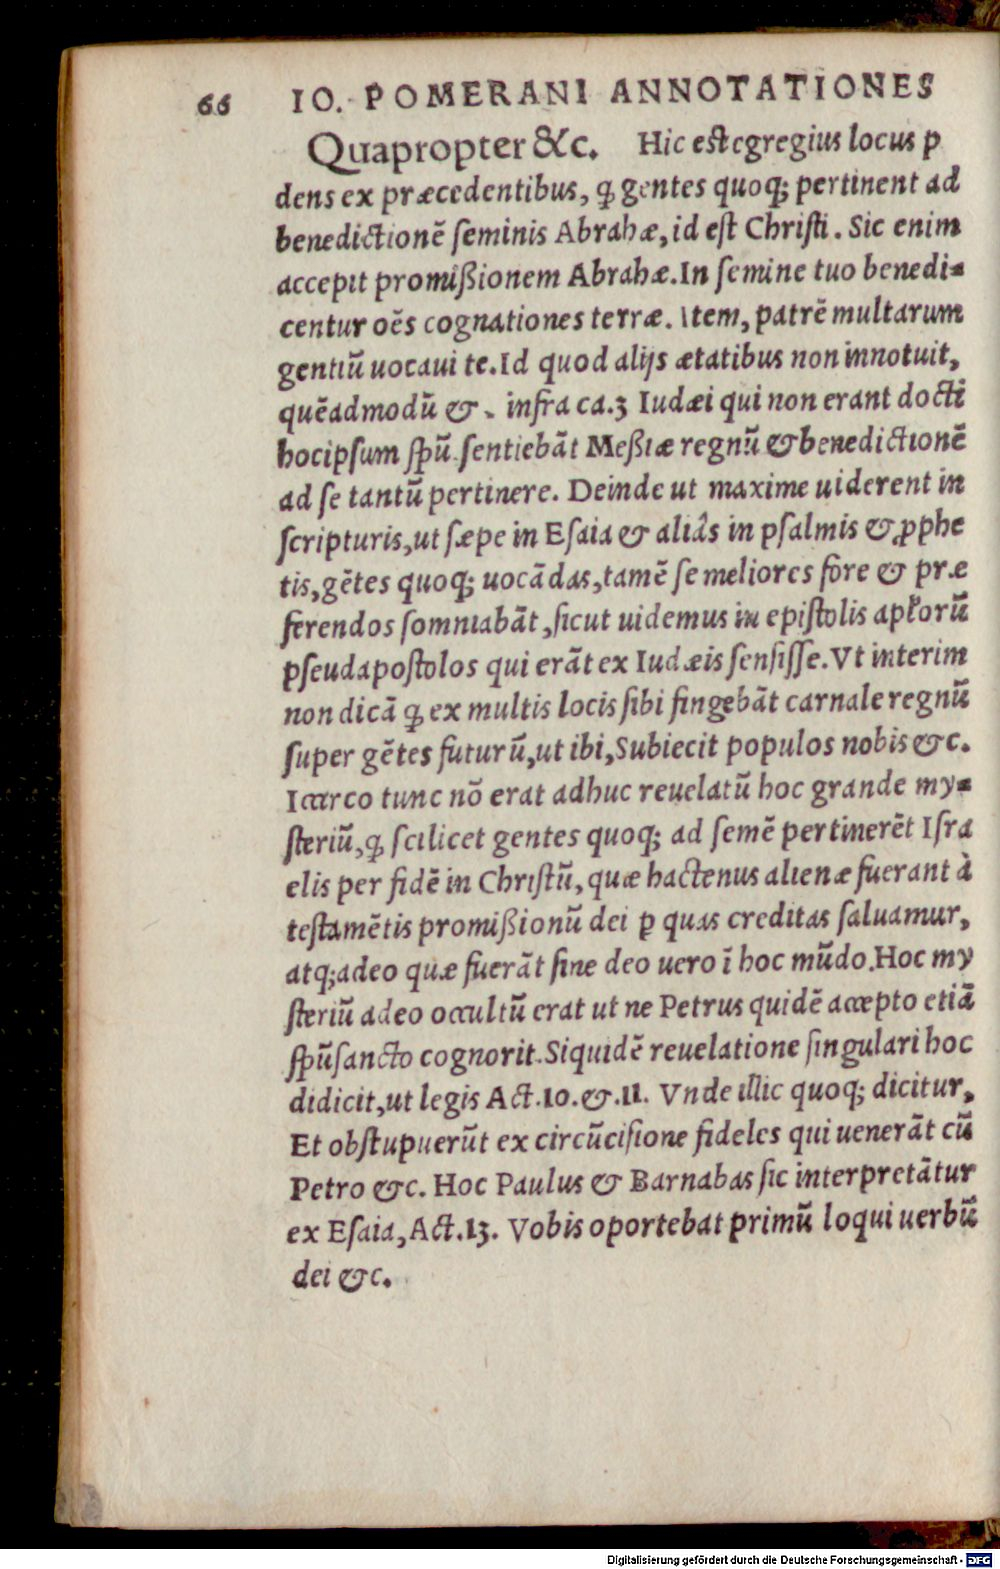 66 IO. POMERANI ANNOTATIONES
Quapropter &c. Hic est egregius locus p
dens ex præcedentibus, ꝙ gentes quoq; pertinent ad
benedictionē ſeminis Abrahæ, id eſt Chriſti. Sic enim
accepit promißionem Abrahæ. In ſemine tuo benedi-
centur oẽs cognationes terræ. Item, patrẽ multarum
gentiũ uocaui te. Id quod alijs ætatibus non innotuit,
quẽadmodũ &. infra ca.3 Iudæi qui non erant docti
hocipſum ſpũ ſentiebãt Meßiæ regnũ & benedictionẽ
ad ſe tantũ pertinere. Deinde ut maxime uiderent in
ſcripturis, ut ſæpe in Eſaia & aliâs in pſalmis & ꝓphe
tis, gẽtes quoq; uocãdas, tamẽ ſe meliores fore & præ
ferendos ſomniabãt, ſicut uidemus in epiſtolis apľorũ
pſeudapoſtolos qui erãt ex Iudæis ſenſiſſe. Vt interim
non dicã ꝙ ex multis locis ſibi fingebãt carnale regnũ
ſuper gẽtes futurũ, ut ibi, Subiecit populos nobis &c.
Icarco tunc nõ erat adhuc reuelatũ hoc grande my-
ſteriũ, ꝙ ſcilicet gentes quoq; ad ſemẽ pertinerẽt Iſra
elis per fidẽ in Chriſtũ, quæ hactenus alienæ fuerant à
teſtamẽtis promißionũ dei ꝑ quas creditas ſaluamur,
atq; adeo quæ fuerãt ſine deo uero ĩ hoc mũdo. Hoc my
ſteriũ adeo occultũ erat ut ne Petrus quidẽ accepto etiã
ſpũſancto cognorit. Siquidẽ reuelatione ſingulari hoc
didicit, ut legis Act.10.&.11. Vnde illic quoq; dicitur,
Et obſtupuerũt ex circũciſione fideles qui uenerãt cũ
Petro &c. Hoc Paulus & Barnabas ſic interpretãtur
ex Eſaia, Act.13. Vobis oportebat primũ loqui uerbũ
dei &c.
Digitalisierung gefördert durch die Deutsche Forschungsgemeinschaft - DFG